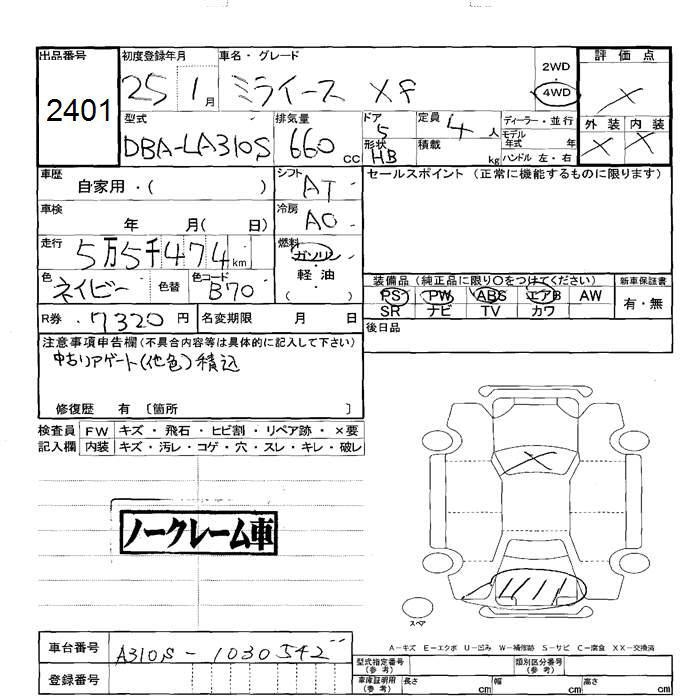 出品番号 初度登録年月 車名・グレード 評価点
2401 25 1月 ミライース XF 2WD 4WD ×
型式 排気量 ドア 定員 ディーラー・並行 外装 内装
DBA-LA310S 660cc 5 4人 モデル年式 年 × ×
形状 HB 積載 kg ハンドル 左・右
車歴 自家用・( ) シフト AT セールスポイント (正常に機能するものに限ります)
車検 年 月( 日) 冷房 AC
走行 5万5千474km 燃料 ガソリン
軽油
( )
色 ネイビー 色替 色コード B70 装備品 (純正品に限り○をつけてください) 新車保証書
PS PW ABS エアB AW 有・無
SR ナビ TV カワ
R券 7320円 名変期限 月 日 後日品
注意事項申告欄(不具合内容等は具体的に記入して下さい)
中古リアゲート(他色)積込
修復歴 有 〔箇所 〕
検査員 FW キズ・飛石・ヒビ割・リペア跡・×要
記入欄 内装 キズ・汚レ・コゲ・穴・スレ・キレ・破レ
ノークレーム車
スペア
A-キズ E-エクボ U-凹み W-補修跡 S-サビ C-腐食 XX-交換済
車台番号 A310S-1030542
型式指定番号(参考) 類別区分番号(参考)
登録番号 車庫証明用(参考) 長さ cm 幅 cm 高さ cm